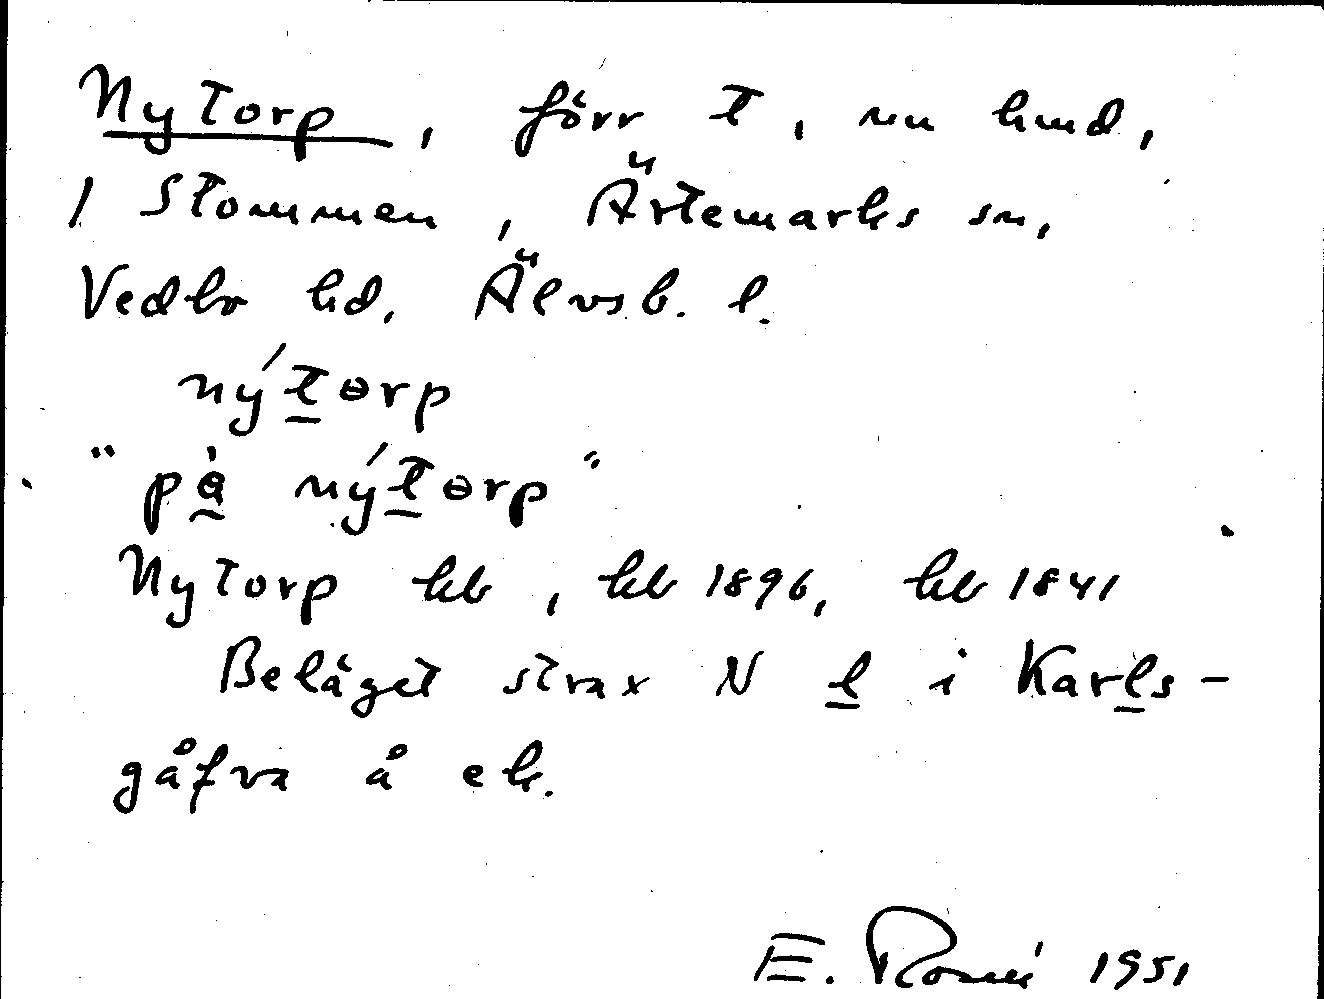 Nytorp, förr t, nu hmd,
1 Stommen, Ärtemarks sn,
Vedbo hd, Älvsb. l.
ný́tɵrp
"på̀ ný́tɵrp"
Nytorp kb, kb 1896, kb 1841
Beläget strax N l i Karls-
gåfva å ek.
E. 1951